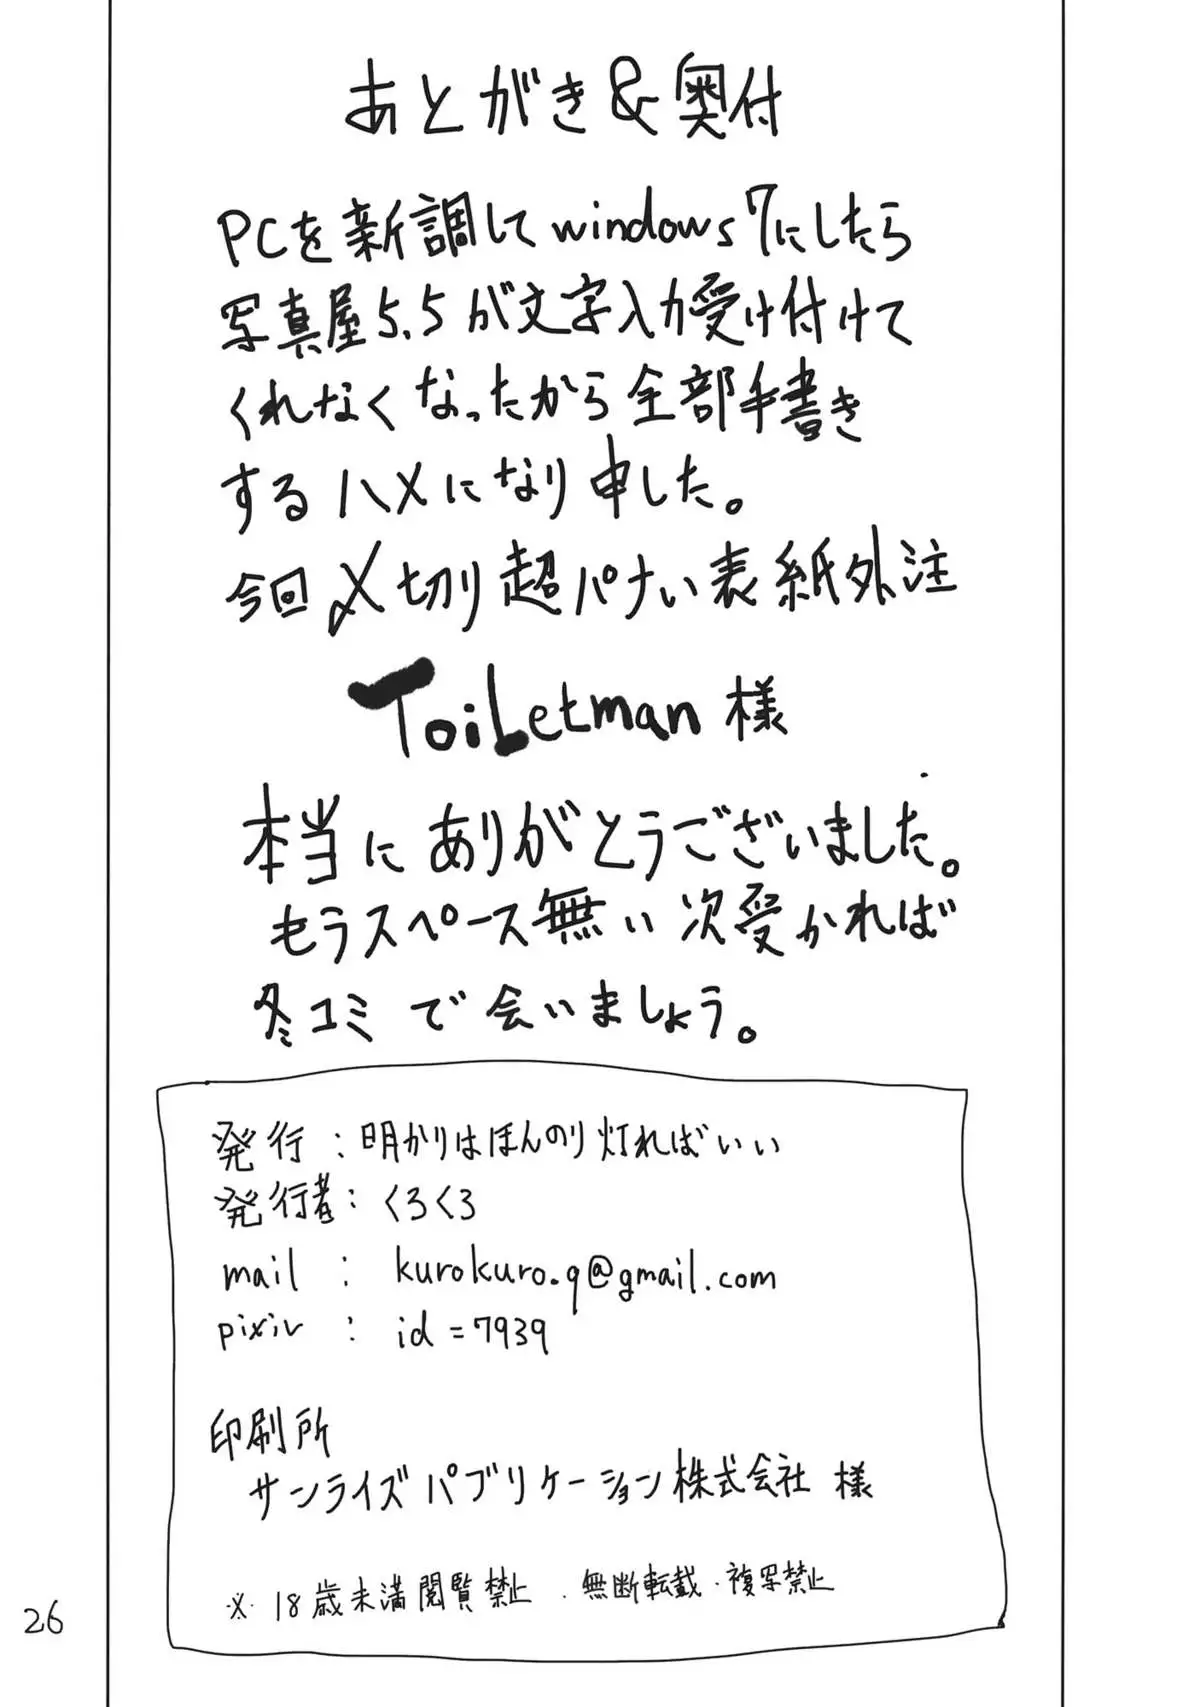 あとがき&奥付
PCを新調してwindows7にしたら
写真屋5.5が文字入力受け付けて
くれなくなったから全部手書き
するハメになり申した。
今回〆切り超パナい表紙外注
ToiLetman様
本当にありがとうございました。
もうスペース無い次受かれば
冬コミで会いましょう。
発行:明かりはほんのり灯ればいい
発行者:くろくろ
mail : kurokuro.q@gmail.com
pixiv : id=7939
印刷所
サンライズパブリケーション株式会社 様
※18歳未満閲覧禁止 . 無断転載・複写禁止
26